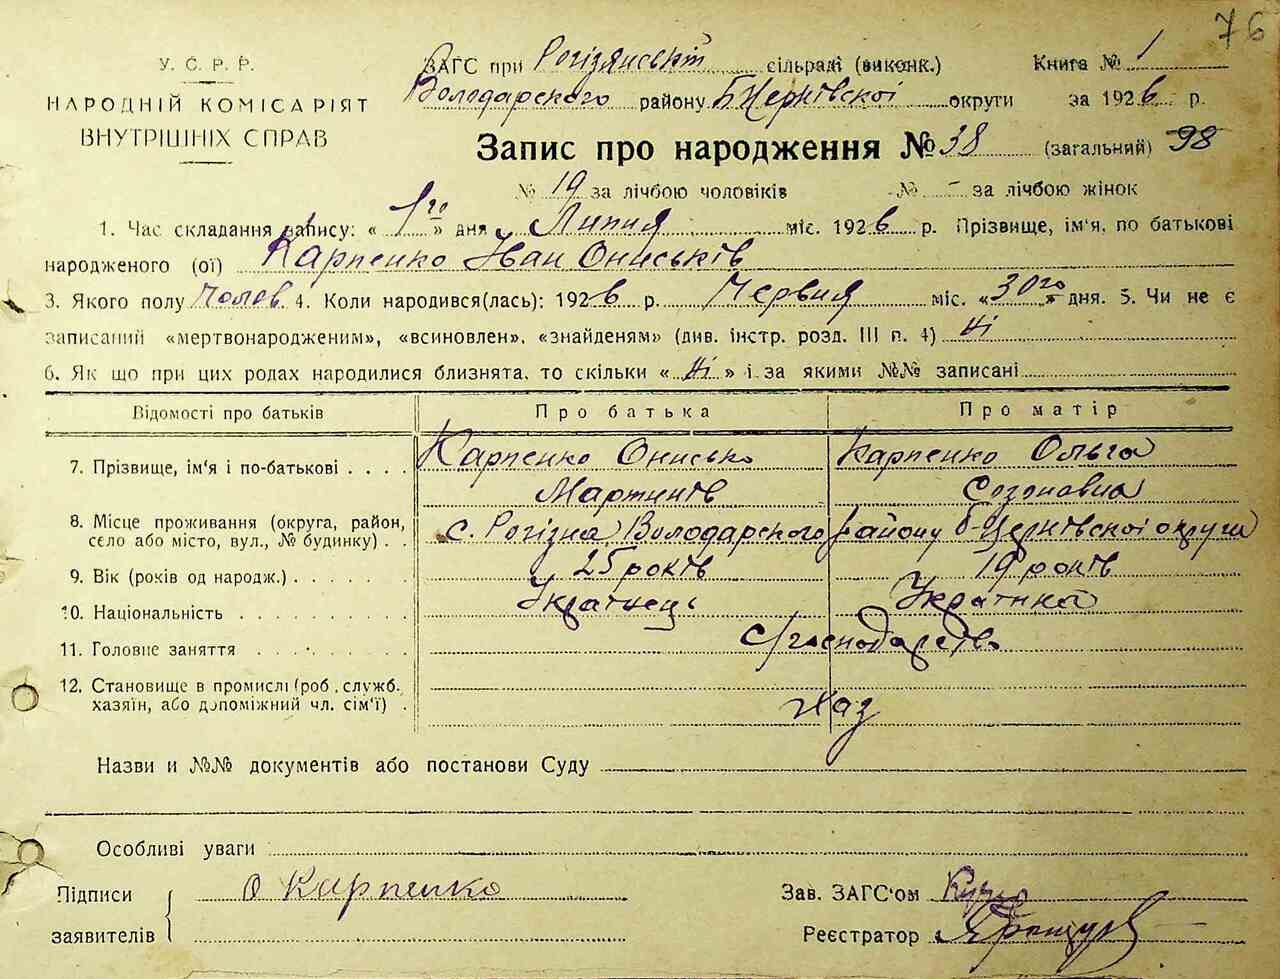 76
У. С. Р. Р.
НАРОДНІЙ КОМІСАРІЯТ
ВНУТРІШНІХ СПРАВ
ЗАГС при Рогізянській сільраді (виконк.) Книга № 1
Володарского району БЦерківскої округи за 1926 р.
Запис про народження № 38 (загальний) 98
№ 19 за лічбою чоловіків № - за лічбою жінок
1. Час складання запису: « 1го » дня Липня міс. 1926 р. Прізвище, ім'я, по батькові
народженого (ої) Карпенко Іван Ониськів
3. Якого полу Чолов. 4. Коли народився(лась): 1926 р. Червня міс. «30го» дня. 5. Чи не є
записаний «мертвонародженим», «всиновлен», «знайденям» (див. інстр. розд. III п. 4) Ні
6. Як що при цих родах народилися близнята, то скільки « Ні » і за якими №№ записані
Відомості про батьків Про батька Про матір
7. Прізвище, ім'я і по-батькові . . . . Карпенко Онисько Карпенко Ольга
Мартинів Созоновна
8. Місце проживання (округа, район,
село або місто, вул., № будинку) . . с. Рогізна Володарского району Б-Церківскої округи
9. Вік (років од народж.) . . . . . . . 25 років 19 років
10. Національність . . . . . . . . . . Українець Українка
11. Головне заняття . . . . . . . . . с/господарство
12. Становище в промислі (роб., служб.
хазяїн, або допоміжний чл. сім'ї) . Хаз
Назви и №№ документів або постанови Суду
Особливі уваги
Підписи О Карпенко Зав. ЗАГС'ом
заявителів Реєстратор